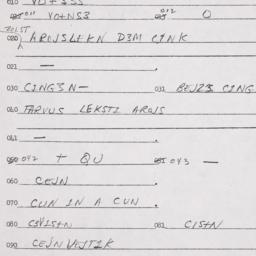 010 VOTNSS
011 VOTNS3 012 O
TOIST
020 AROJSLEKN D3M CINK
021 —
030 CING3N- 031 BEJZ3 CING
040 FARVUS LEKSTI AROJS
041 —
042 + QU 043 —
060 CEJN
070 CUN IN A CUN.
080 CIVISTN 081 CISTN
090 CEJNVAJTIK